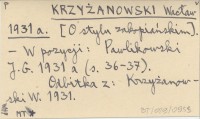 KRZYŻANOWSKI Wacław
1931 a. [O stylu zakopiańskim].
- W pozycji: Pawlikowski
J.G. 1931 a (s. 36-37).
Odbitka z: Krzyżanow-
ski W. 1931.